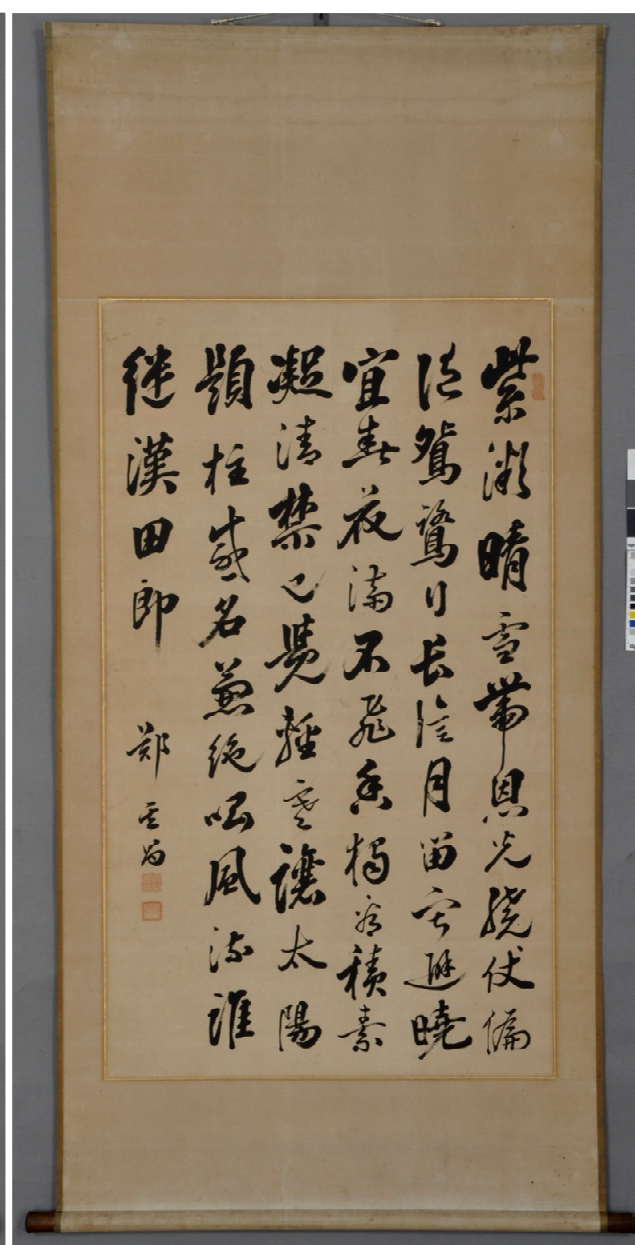 紫微晴雪帶恩光繞仗偏
隨鴛鷺行長信月留寧避曉
宜春花滿不飛香獨看積素
凝清禁已覺輕寒讓太陽
題柱盛名兼絕唱風流誰
繼漢田郎 鄭